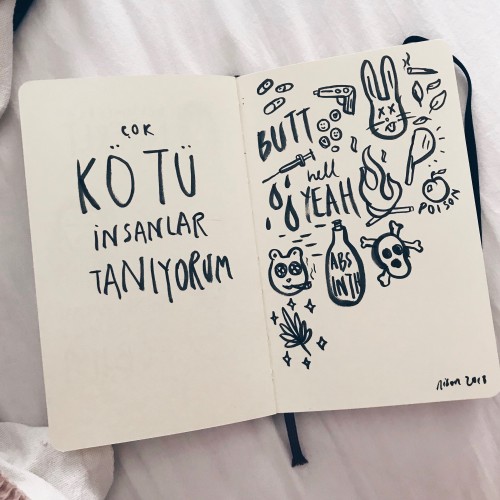 ÇOK
KÖTÜ
İNSANLAR
TANIYORUM
BUTT
hell
YEAH
POISON
ABS
INTH
Nisan 2018